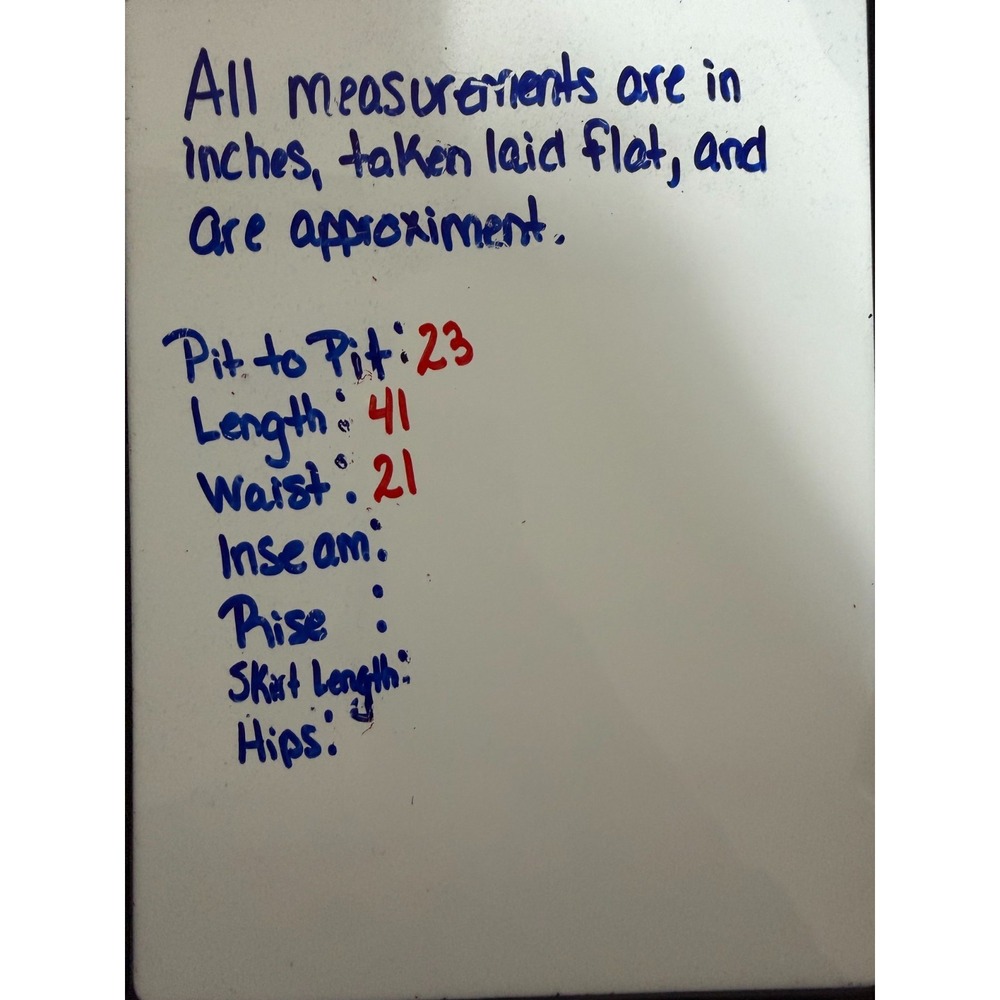 All measurements are in
inches, taken laid flat, and
are approximent.
Pit to Pit: 23
Length: 41
Waist: 21
Inseam:
Rise :
Skirt Length:
Hips: